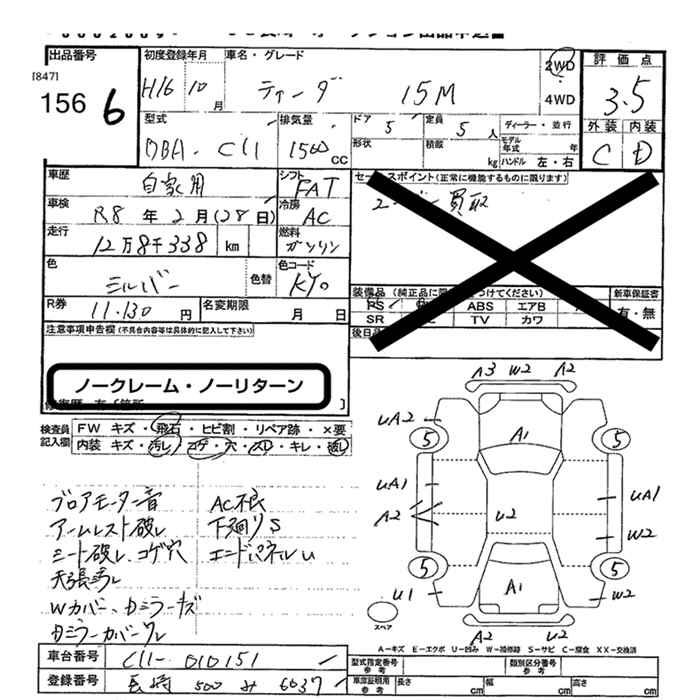 出品番号 初度登録年月 車名・グレード 2WD 評価点
[847] H16 10月 ティーダ 15M 4WD 3.5
156 6 型式 排気量 ドア 5 定員 5人 ディーラー・並行 外装 内装
DBA-C11 1500CC 形状 積載 kg モデル年式 年 ハンドル 左・右 C D
車歴 自家用 シフト FAT セールスポイント(正常に機能するものに限ります)
車検 R8年2月(28日) 冷房 AC 買取
走行 12万8千338 km 燃料 ガソリン
色 シルバー 色替 色コード KY0
装備品(純正品に限 つけてください) 新車保証書
R券 11,130円 名変期限 月 日 PS ABS エアB 有・無
SR TV カワ
注意事項申告欄(不具合内容等は具体的に記入して下さい) 後日品
ノークレーム・ノーリターン
検査員記入欄 FW キズ・飛石・ヒビ割・リペア跡・×要
内装 キズ・汚れ・コゲ・穴・スレ・キレ・破れ
A3 W2 A2
UA2 5 A1 5
UA1 UA1
A2 U2 W2
5 5
U1 A1 W2
A2 U2
スペア
ブロアモーター音 AC不良
アームレスト破レ 下廻りS
シート破レ、コゲ穴 エンドパネルU
天張汚レ
Wカバー、カミラーキズ
カミラーカバークレ
A-キズ E-エクボ U-凹み W-補修跡 S-サビ C-腐食 XX-交換済
車台番号 C11-010151 型式指定番号 参考 類別区分番号 参考
登録番号 長崎 500 み 6037 車庫証明用 参考 長さ cm 幅 cm 高さ cm